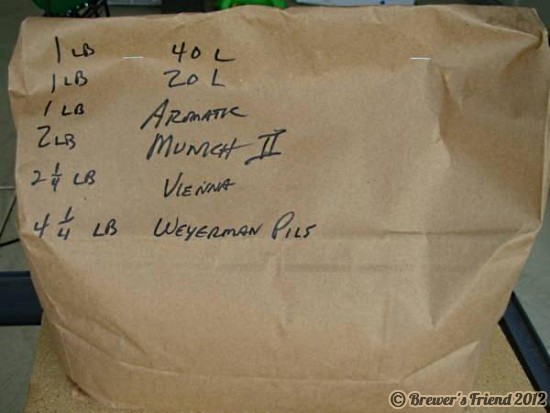 1 LB 40 L
1 LB 20 L
1 LB AROMATIC
2 LB MUNICH II
2 1/4 LB VIENNA
4 1/4 LB WEYERMAN PILS
© Brewer's Friend 2012